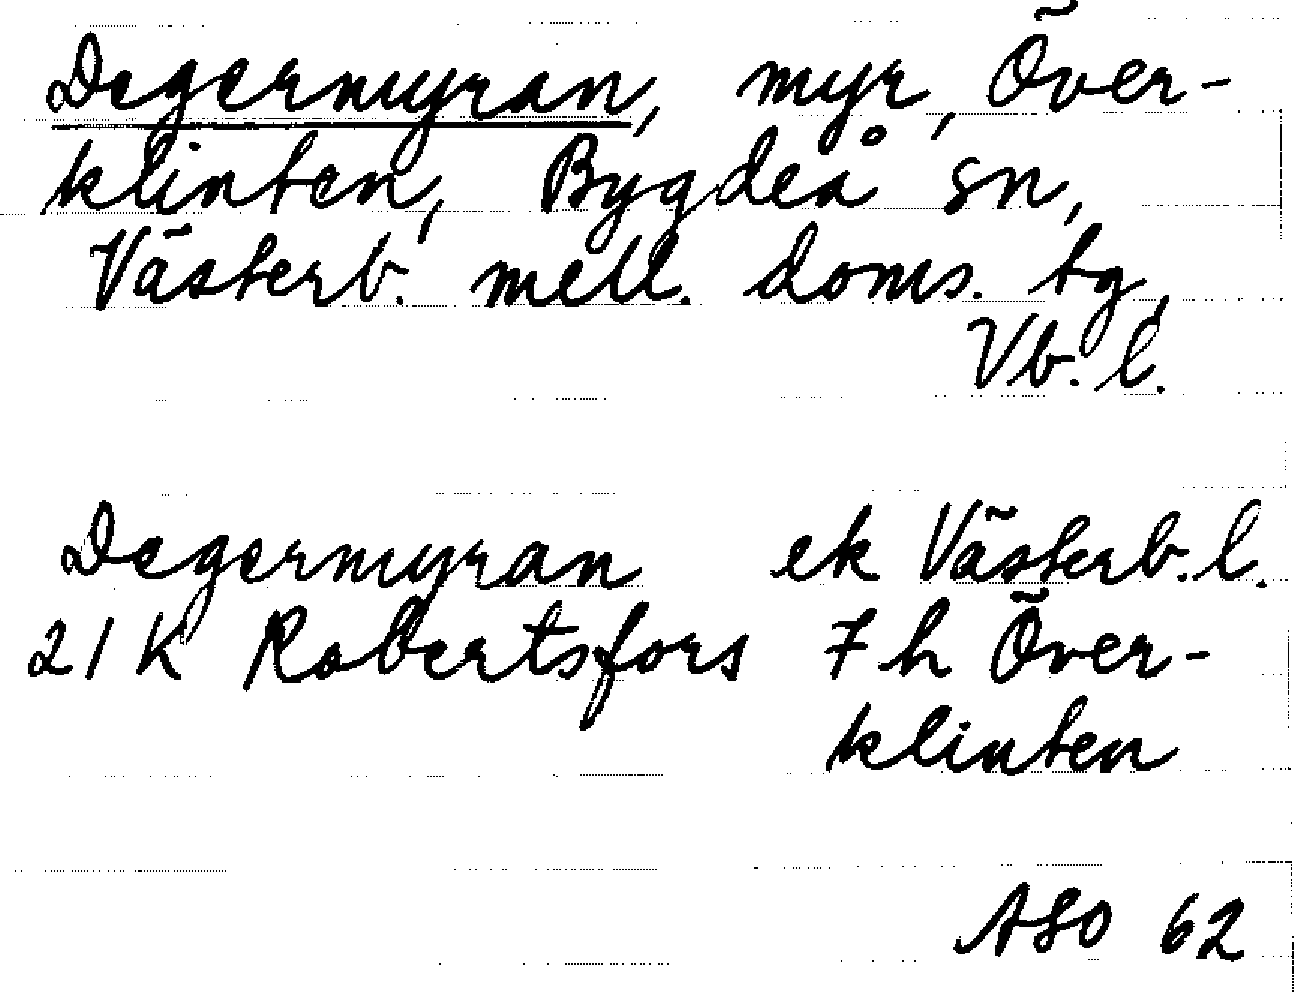 Degermyran, myr, Över-
klinten, Bygdeå sn,
Västerb. mell. doms. tg,
Vb. l.
Degermyran ek Västerb. l.
21 K Robertsfors 7 h Över-
klinten
ASO 62